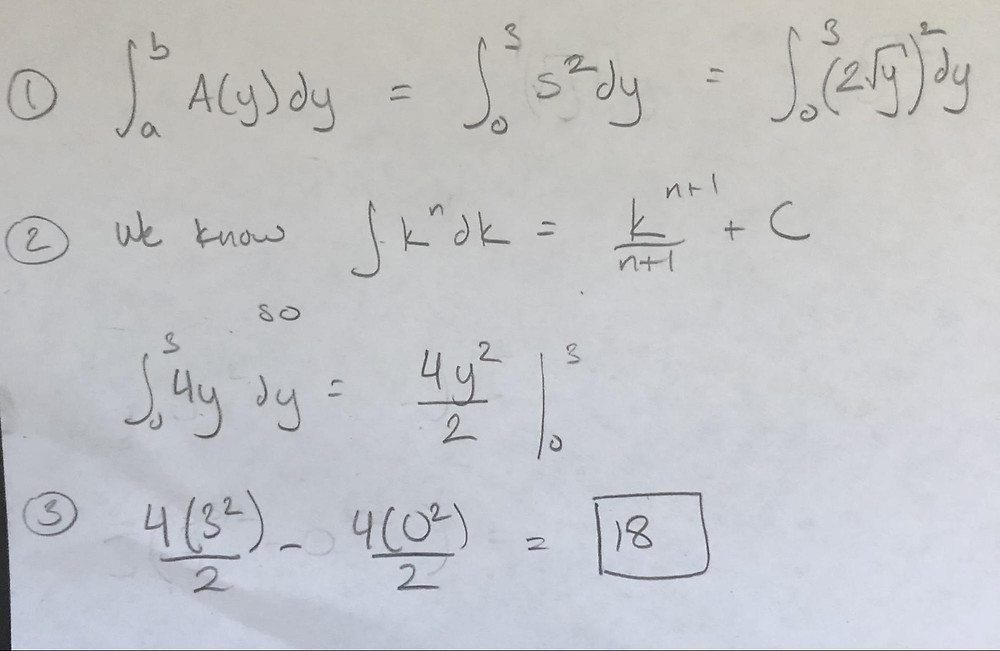 ① ∫ₐᵇ A(y) dy = ∫₀³ s² dy = ∫₀³ (2√y)² dy
② We know ∫ kⁿ dk = kⁿ⁺¹/(n+1) + C
so
∫₀³ 4y dy = 4y²/2 |₀³
③ 4(3²)/2 - 4(0²)/2 = 18